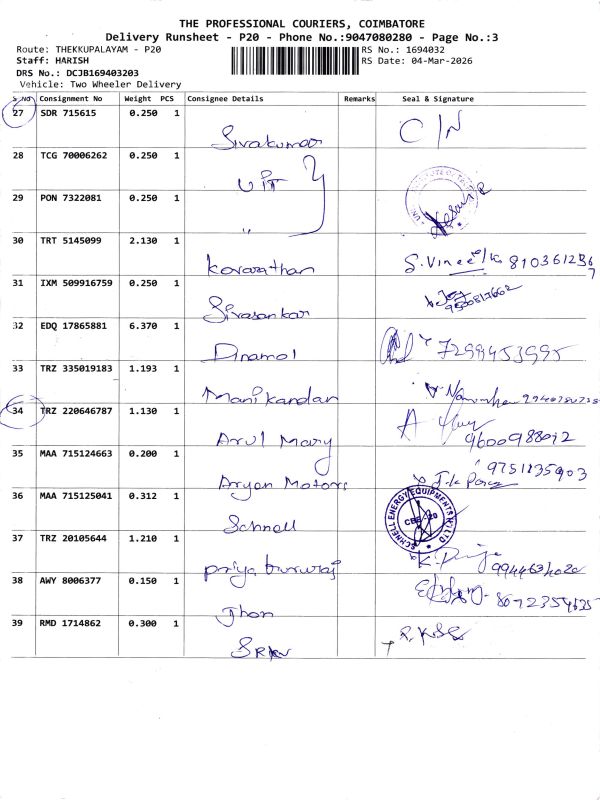 THE PROFESSIONAL COURIERS, COIMBATORE
Delivery Runsheet - P20 - Phone No.:9047080280 - Page No.:3
Route: THEKKUPALAYAM - P20
RS No.: 1694032
Staff: HARISH
RS Date: 04-Mar-2026
DRS No.: DCJB169403203
Vehicle: Two Wheeler Delivery
S.No Consignment No Weight PCS Consignee Details Remarks Seal & Signature
27 SDR 715615 0.250 1 Sivakumar C/N
28 TCG 70006262 0.250 1 UIT
29 PON 7322081 0.250 1 "
30 TRT 5145099 2.130 1 Kovarathan S. Vineeth
31 IXM 509916759 0.250 1 Sivasankar 9500817662
32 EDQ 17865881 6.370 1 Dinamal 7299453995
33 TRZ 335019183 1.193 1 Manikandan
34 TRZ 220646787 1.130 1 Arul Mary 9600988012
35 MAA 715124663 0.200 1 Aryan Motors 9751235903
36 MAA 715125041 0.312 1 Schnell SCHNELL ENERGY EQUIPMENTS P LTD CBE-20
37 TRZ 20105644 1.210 1 Priya
38 AWY 8006377 0.150 1 Jhon
39 RMD 1714862 0.300 1